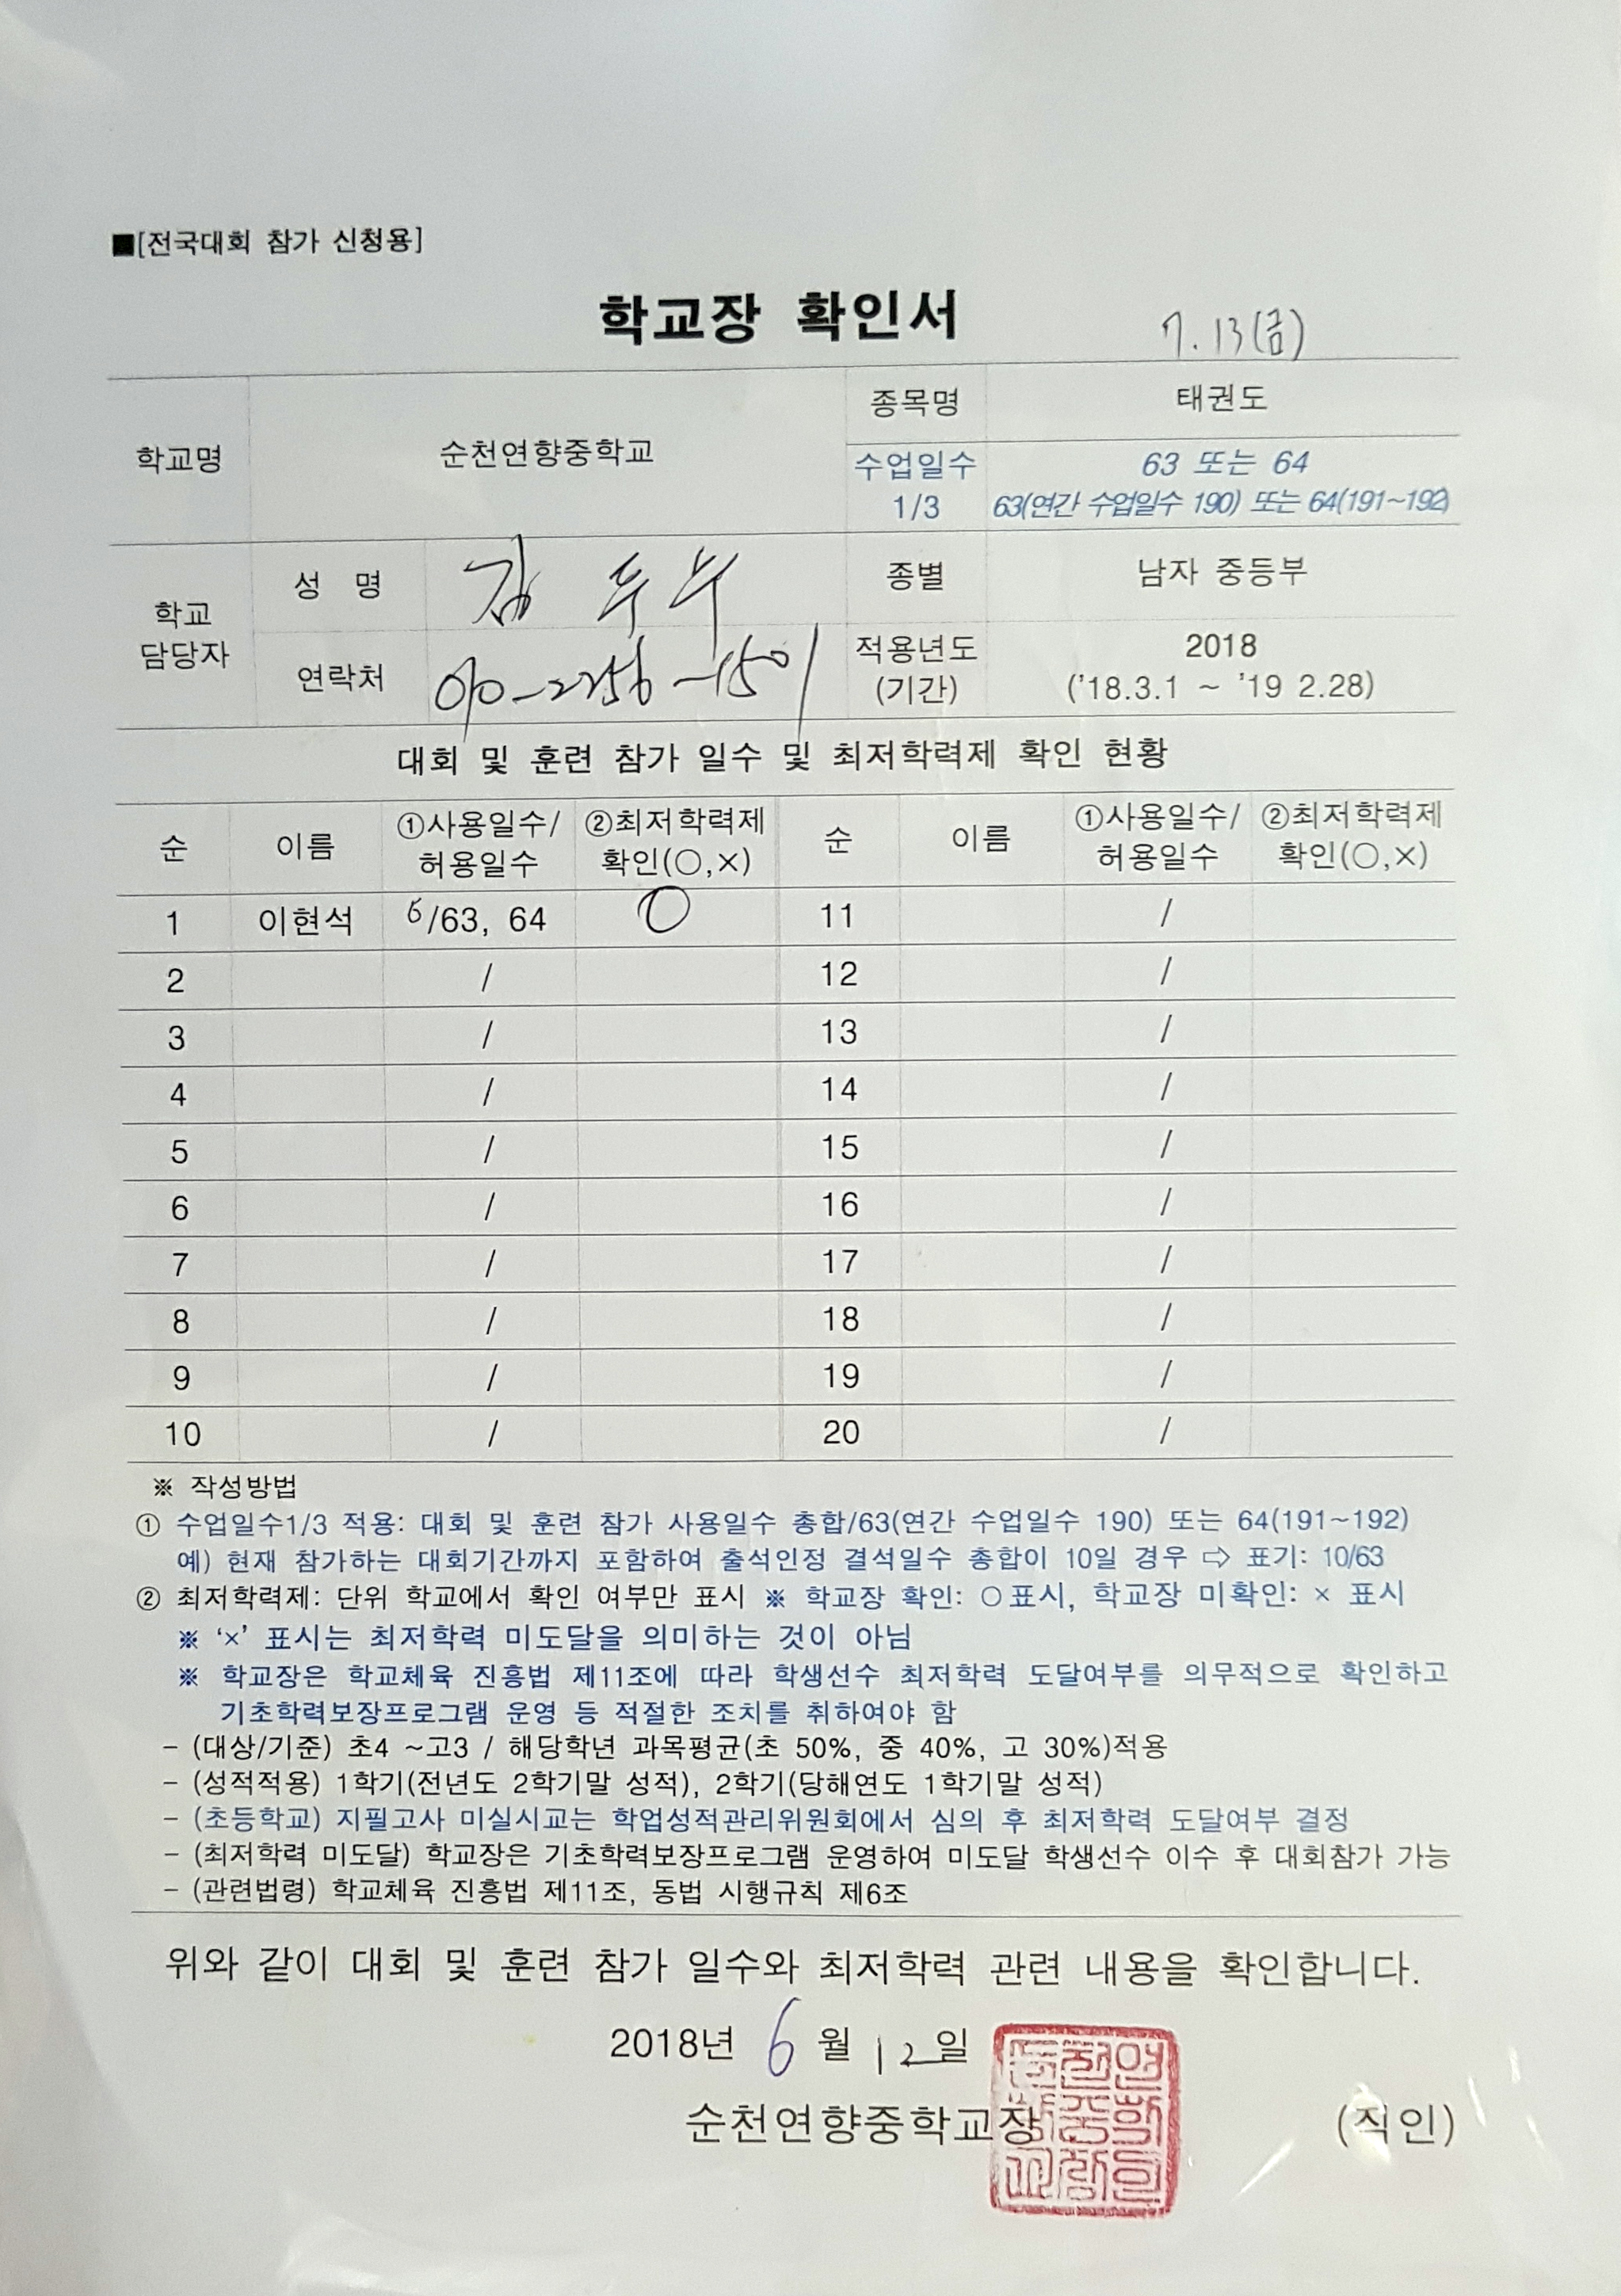 ■[전국대회 참가 신청용]
학교장 확인서
7. 13(금)
학교명 순천연향중학교 종목명 태권도
수업일수 1/3 63 또는 64
63(연간 수업일수 190) 또는 64(191~192)
학교 담당자 성 명 김두수 종별 남자 중등부
연락처 010-2256-1501 적용년도 (기간) 2018
('18.3.1 ~ '19 2.28)
대회 및 훈련 참가 일수 및 최저학력제 확인 현황
순 이름 ①사용일수/허용일수 ②최저학력제 확인(○,×) 순 이름 ①사용일수/허용일수 ②최저학력제 확인(○,×)
1 이현석 6/63, 64 ○ 11 /
2 / 12 /
3 / 13 /
4 / 14 /
5 / 15 /
6 / 16 /
7 / 17 /
8 / 18 /
9 / 19 /
10 / 20 /
※ 작성방법
① 수업일수1/3 적용: 대회 및 훈련 참가 사용일수 총합/63(연간 수업일수 190) 또는 64(191~192)
예) 현재 참가하는 대회기간까지 포함하여 출석인정 결석일수 총합이 10일 경우 ⇨ 표기: 10/63
② 최저학력제: 단위 학교에서 확인 여부만 표시 ※ 학교장 확인: ○표시, 학교장 미확인: × 표시
※ '×' 표시는 최저학력 미도달을 의미하는 것이 아님
※ 학교장은 학교체육 진흥법 제11조에 따라 학생선수 최저학력 도달여부를 의무적으로 확인하고
기초학력보장프로그램 운영 등 적절한 조치를 취하여야 함
- (대상/기준) 초4 ~고3 / 해당학년 과목평균(초 50%, 중 40%, 고 30%)적용
- (성적적용) 1학기(전년도 2학기말 성적), 2학기(당해연도 1학기말 성적)
- (초등학교) 지필고사 미실시교는 학업성적관리위원회에서 심의 후 최저학력 도달여부 결정
- (최저학력 미도달) 학교장은 기초학력보장프로그램 운영하여 미도달 학생선수 이수 후 대회참가 가능
- (관련법령) 학교체육 진흥법 제11조, 동법 시행규칙 제6조
위와 같이 대회 및 훈련 참가 일수와 최저학력 관련 내용을 확인합니다.
2018년 6월 12일
순천연향중학교장 (직인)